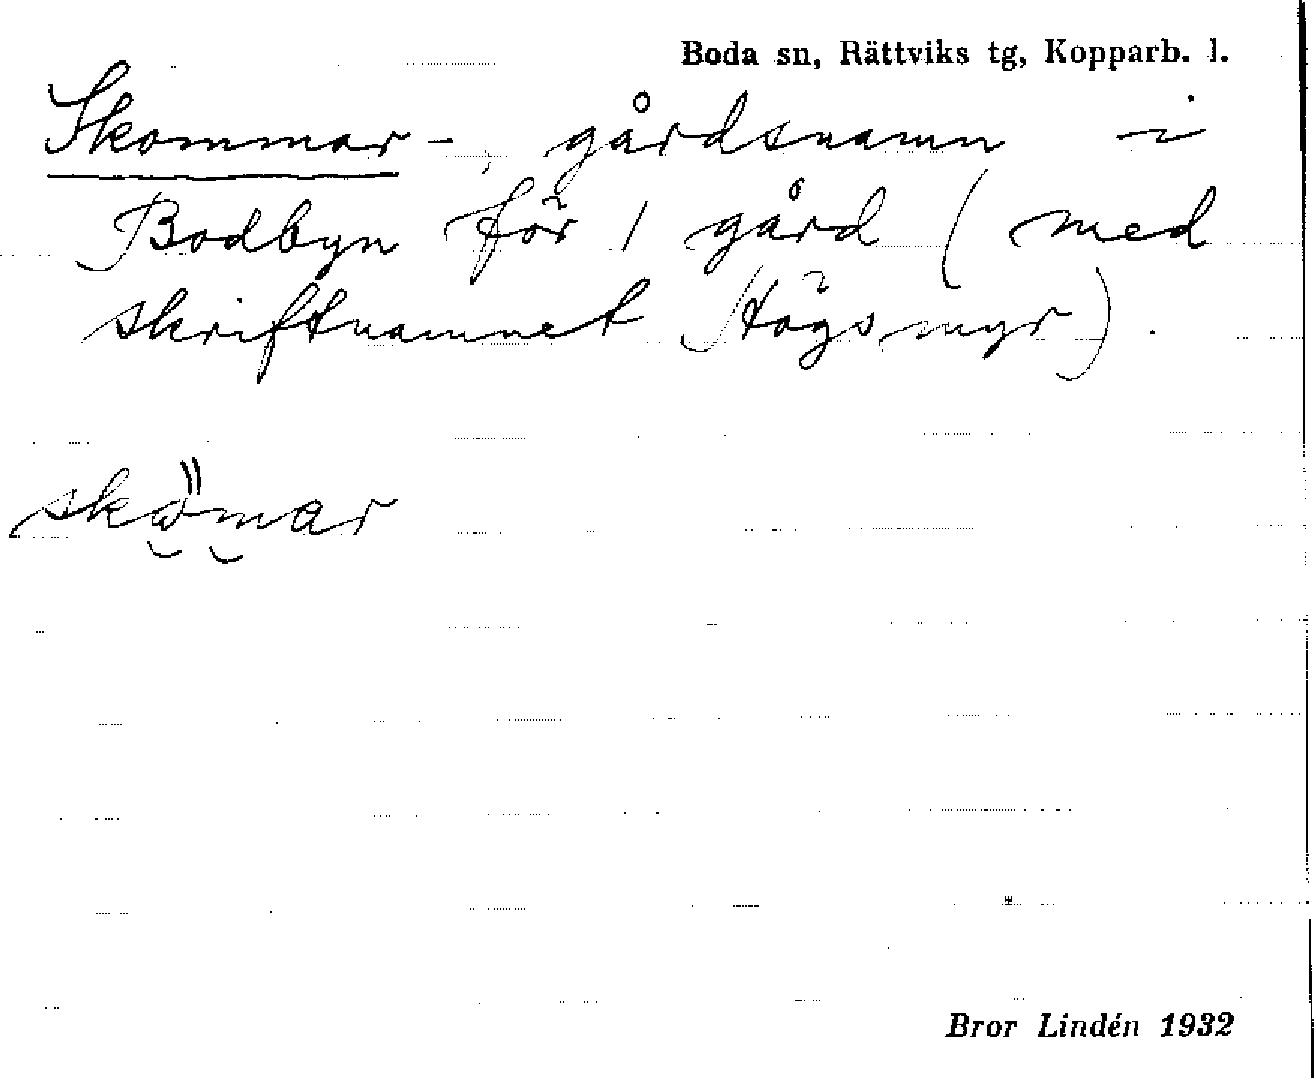 Boda sn, Rättviks tg, Kopparb. l.
Skommar-, gårdsnamn i
Bodbyn för 1 gård (med
skriftnamnet Högsmyr).
skömar
Bror Lindén 1932